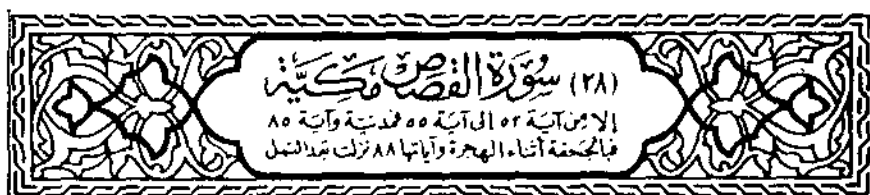 (٢٨) سُورَةُ القَصَصِ مَكِيَّة
إلا من آية ٥٢ إلى آية ٥٥ فمدنية وآية ٨٥
فبالجحفة أثناء الهجرة وآياتها ٨٨ نزلت بعد النمل